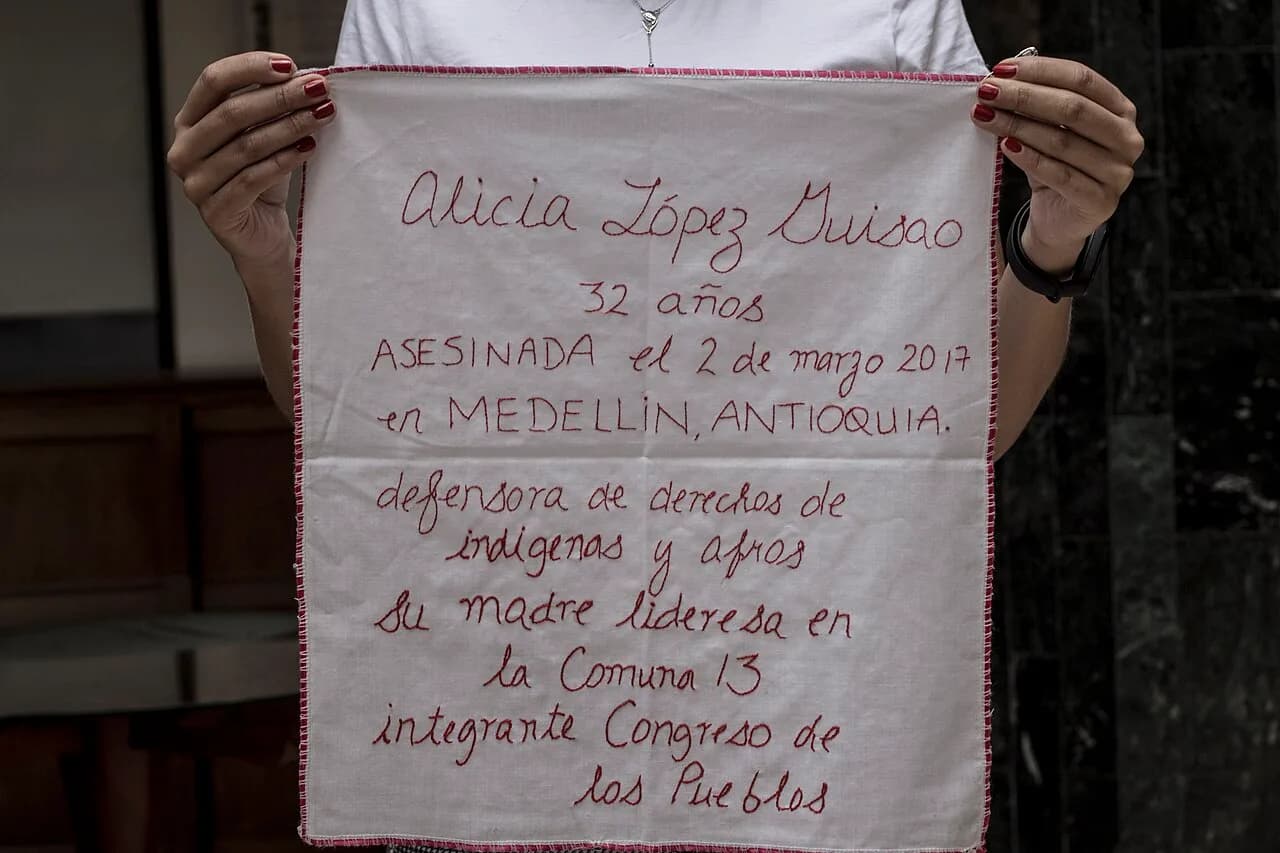 Alicia López Guisao
32 años
ASESINADA el 2 de marzo 2017
en MEDELLíN, ANTIOQUIA.
defensora de derechos de
indígenas y afros
su madre lideresa en
la Comuna 13
integrante Congreso de
los Pueblos